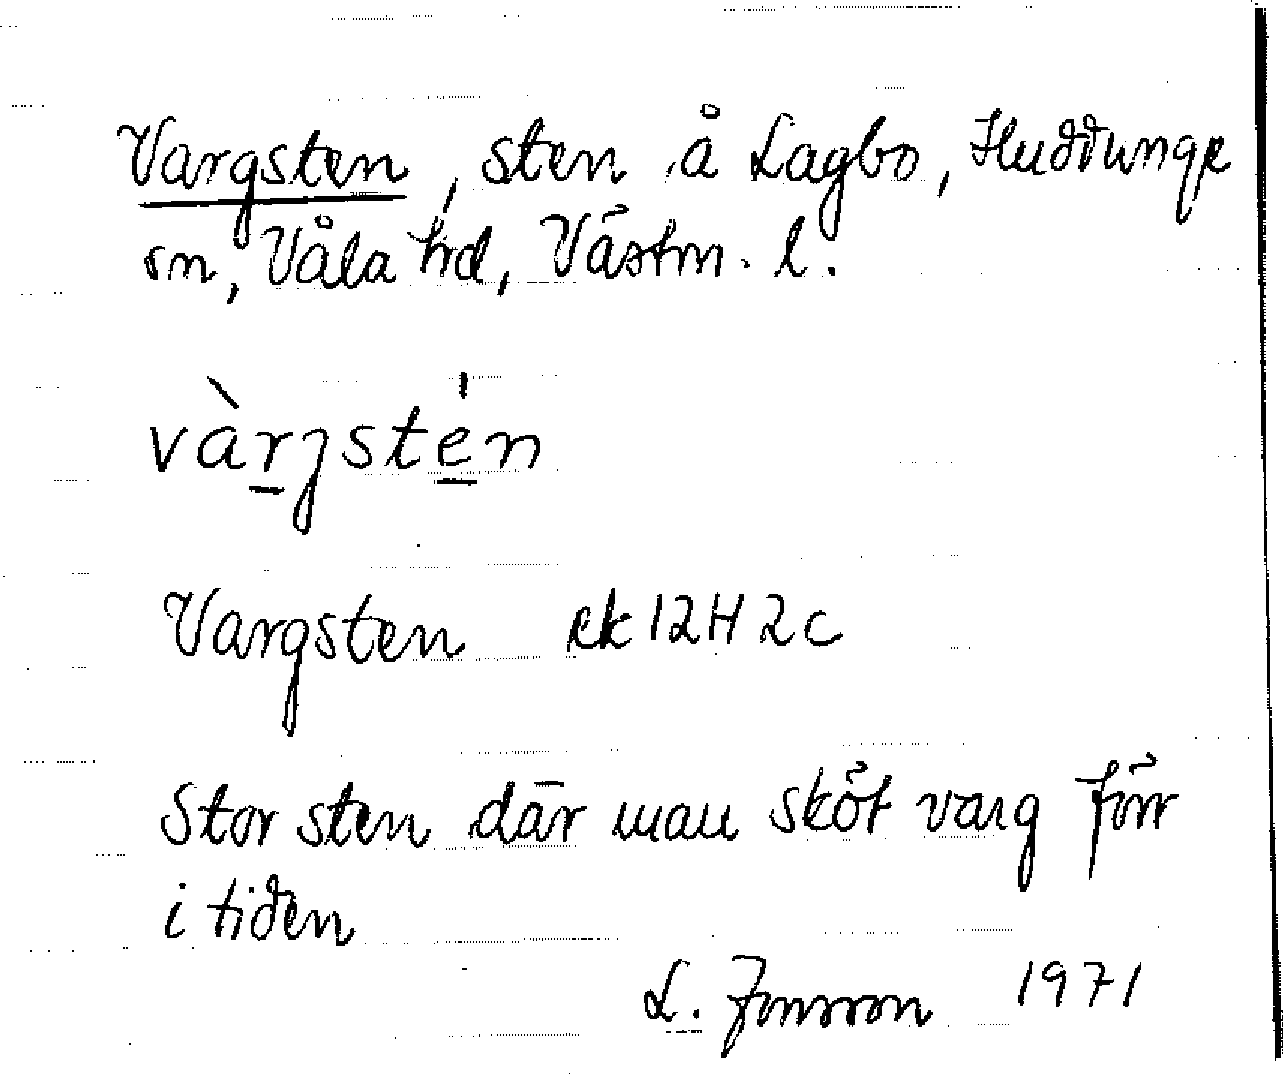 Vargsten, sten å Lagbo, Huddunge
sn, Våla hd, Västm. l.
vàrjstén
Vargsten ek 12H2c
Stor sten där man sköt varg förr
i tiden
L. Jonsson 1971